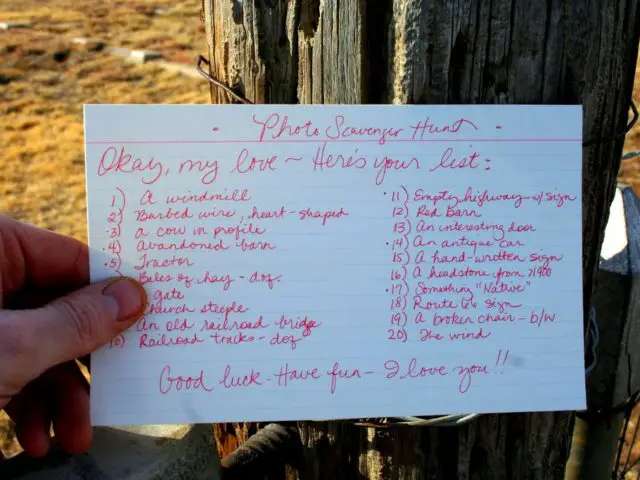 - Photo Scavenger Hunt -
Okay, my love ~ Here's your list:
1) A windmill
2) Barbed wire, heart-shaped
3) a cow in profile
4) Abandoned barn
5) Tractor
Bales of hay - dof.
gate
Church steeple
An old railroad bridge
10) Railroad tracks - dof
11) Empty highway w/ sign
12) Red Barn
13) An interesting door
14) An antique car
15) A hand-written sign
16) A headstone from 1900
17) Something "Native"
18) Route 66 sign
19) A broken chair - b/w
20) The wind
Good luck - Have fun - I love you!!